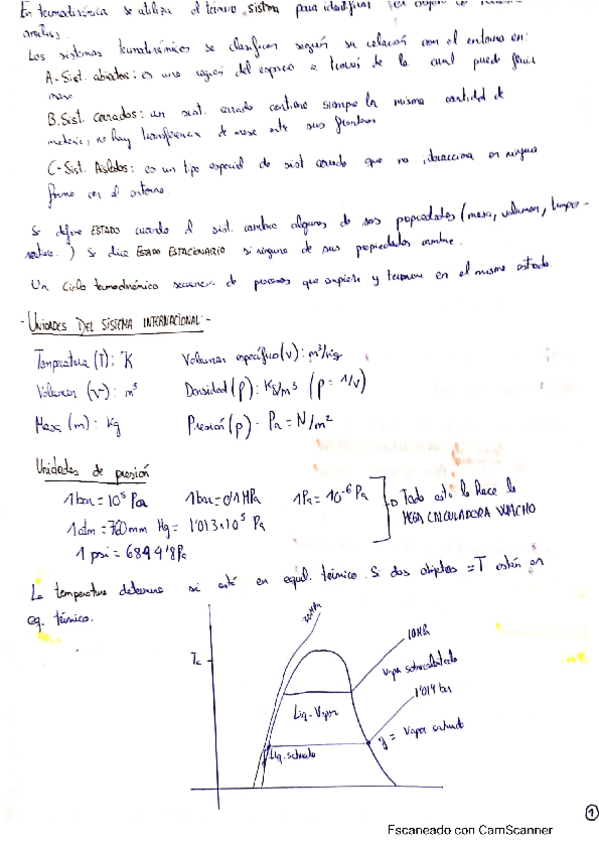 En termodinámica se utiliza el término sistema para identificar
análisis.
Los sistemas termodinámicos se clasifican según su relación con el entorno en:
A.-Sist. abiertos: es una región del espacio a través de la cual puede fluir
masa
B.Sist. cerrados: un sist. cerrado contiene siempre la misma cantidad de
materia, no hay transferencia de masa entre sus fronteras
C-Sist. Aislados: es un tipo especial de sist cerrado que no interacciona en ninguna
forma con el entorno.
Se define ESTADO cuando el sist. cambia algunas de sus propiedades (masa, volumen, tempe-
ratura..) Se dice ESTADO ESTACIONARIO si ninguna de sus propiedades cambia.
Un Ciclo termodinámico secuencia de procesos que empieza y termina en el mismo estado.
-UNIDADES DEL SISTEMA INTERNACIONAL:-
Temperatura (T): ºK Volumen específico (v): m³/kg
Volumen (v): m³ Densidad (ρ): Kg/m³ (ρ = 1/v)
Masa (m): Kg Presión (p): Pa = N/m²
Unidades de presión
1 bar = 10⁵ Pa 1 bar = 0'1 MPa 1 Pa = 10⁻⁶ Pa Todo esto lo hace la
MEGA CALCULADORA
1 atm = 760 mm Hg = 1'013x10⁵ Pa
1 psi = 6894'8 Pa
La temperatura determina si está en equil. térmico. Si dos objetos = T están en
eq. térmico.
Tc
10 MPa
Vapor sobrecalentado
1'014 bar
Liq-Vapor
g = Vapor saturado
Liq. saturado
1
Escaneado con CamScanner